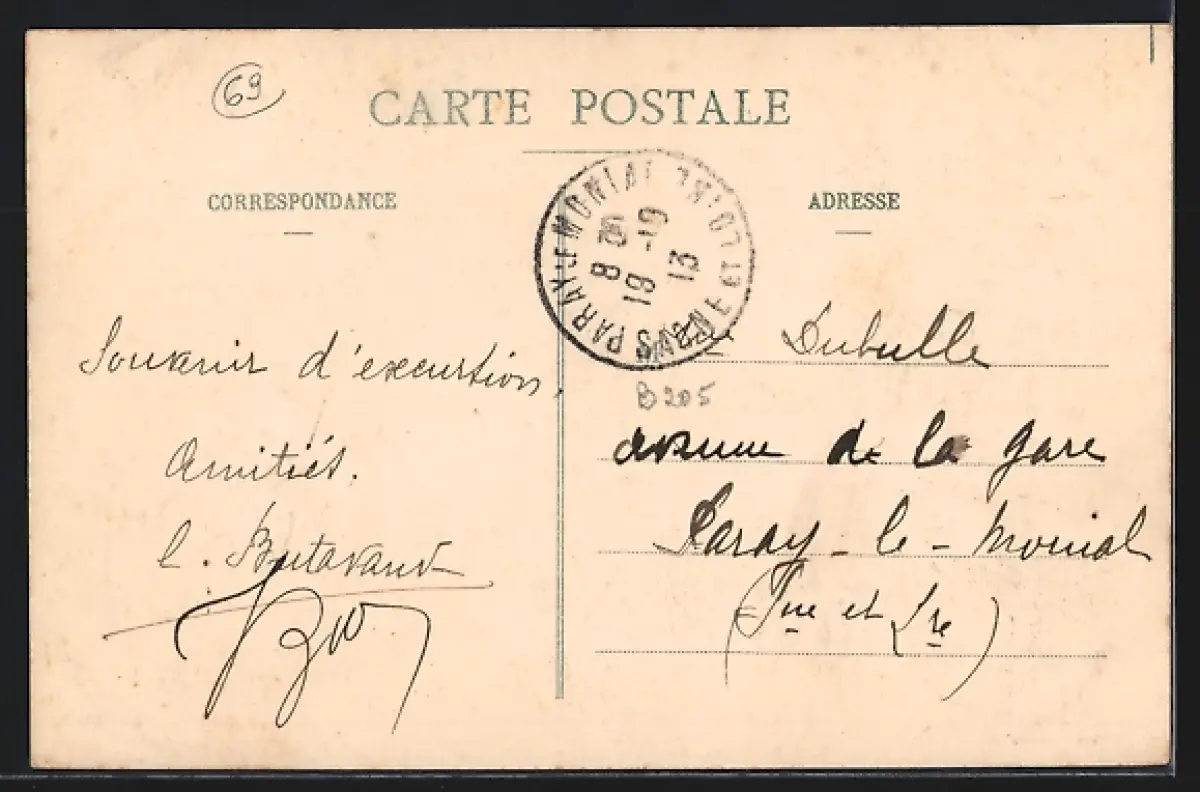 69
CARTE POSTALE
CORRESPONDANCE
ADRESSE
PARAY-LE-MONIAL
SAONE ET LOIRE
8
19 -10
13
Souvenir d'excursion,
Amitiés.
Dubulle
B205
avenue de la gare
Paray-le-Monial
(Sne et Lre)